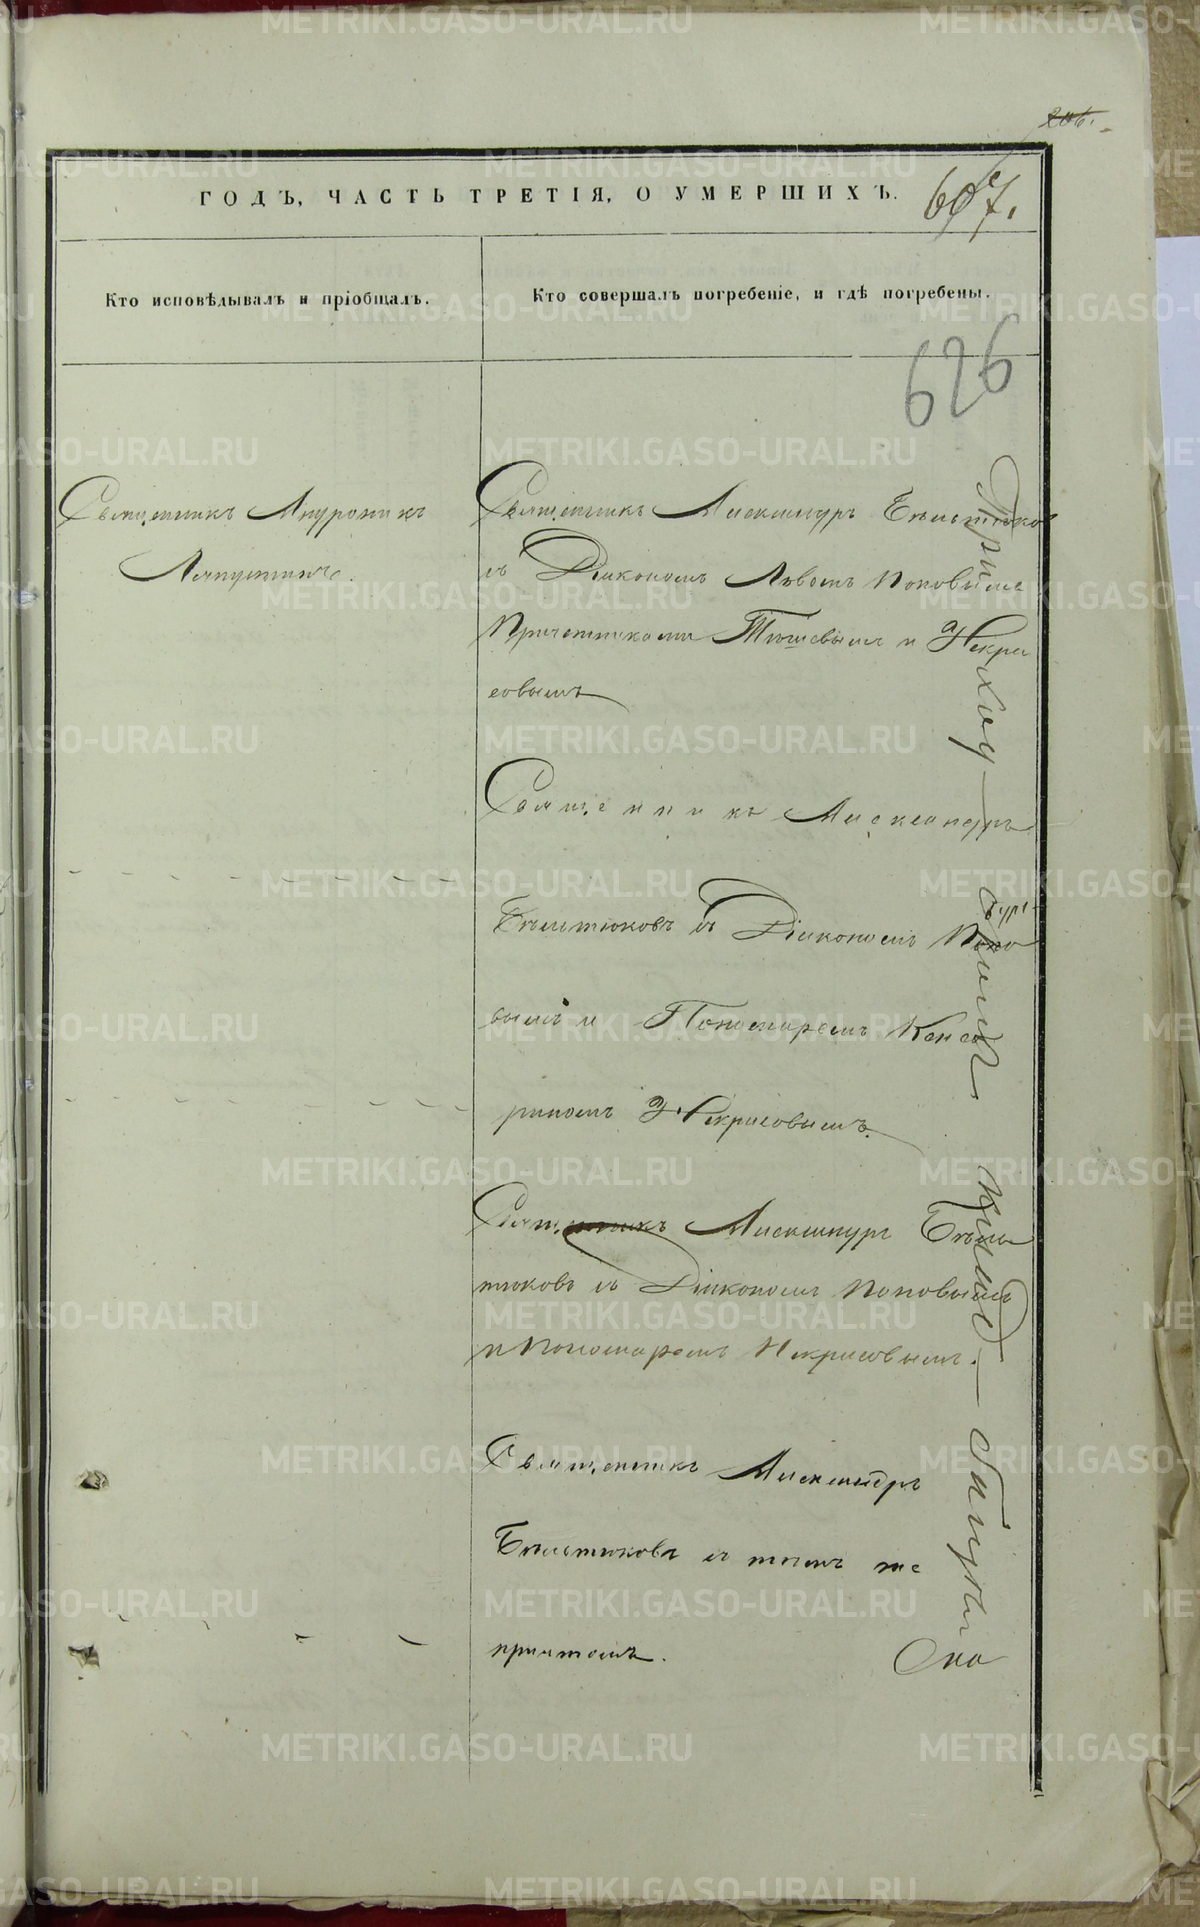 206.
ГОДЪ, ЧАСТЬ ТРЕТІЯ, О УМЕРШИХЪ.
607.
Кто исповѣдывалъ и пріобщалъ.
Кто совершалъ погребеніе, и гдѣ погребены.
626
Священникъ Андроникъ
Ляпустинъ.
Священникъ Александръ Бѣльтюковъ
съ Діакономъ Львомъ Поповымъ
Причетниками Тюшевымъ и Некра
совымъ
Священникъ Александръ
Бѣльтюковъ съ Діакономъ Попо
вымъ и Пономаремъ
Некрасовымъ.
Священникъ Александръ Бѣль
тюковъ съ Діакономъ Поповымъ
и Пономаремъ Некрасовымъ.
Священникъ Александръ
Бѣльтюковъ съ тѣмъ же
причтомъ.
При
ход
клад
бищѣ
METRIKI.GASO-URAL.RU